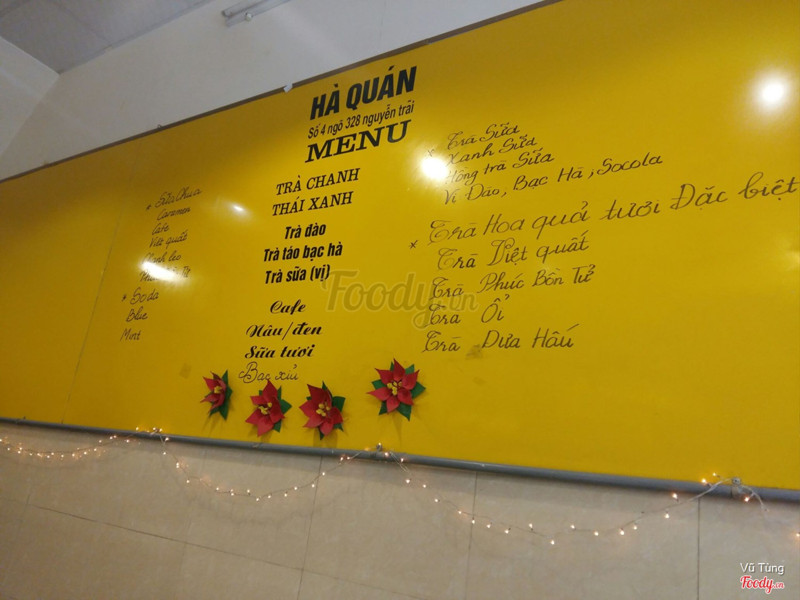 HÀ QUÁN
Số 4 ngõ 328 nguyễn trãi
MENU
* Sữa Chua
Caramen
Cafe
Việt quất
Chanh leo
* Soda
Blue
Mint
TRÀ CHANH
THÁI XANH
Trà đào
Trà táo bạc hà
Trà sữa (vị)
Cafe
Nâu/đen
Sữa tươi
Bạc xỉu
* Trà Sữa
Xanh Sữa
Hồng trà Sữa
Vị Đào, Bạc Hà, Socola
* Trà Hoa quả tươi Đặc biệt
Trà Việt quất
Trà Phúc Bồn Tử
Trà Ổi
Trà Dưa Hấu
Foody.vn
Vũ Tùng
Foody.vn